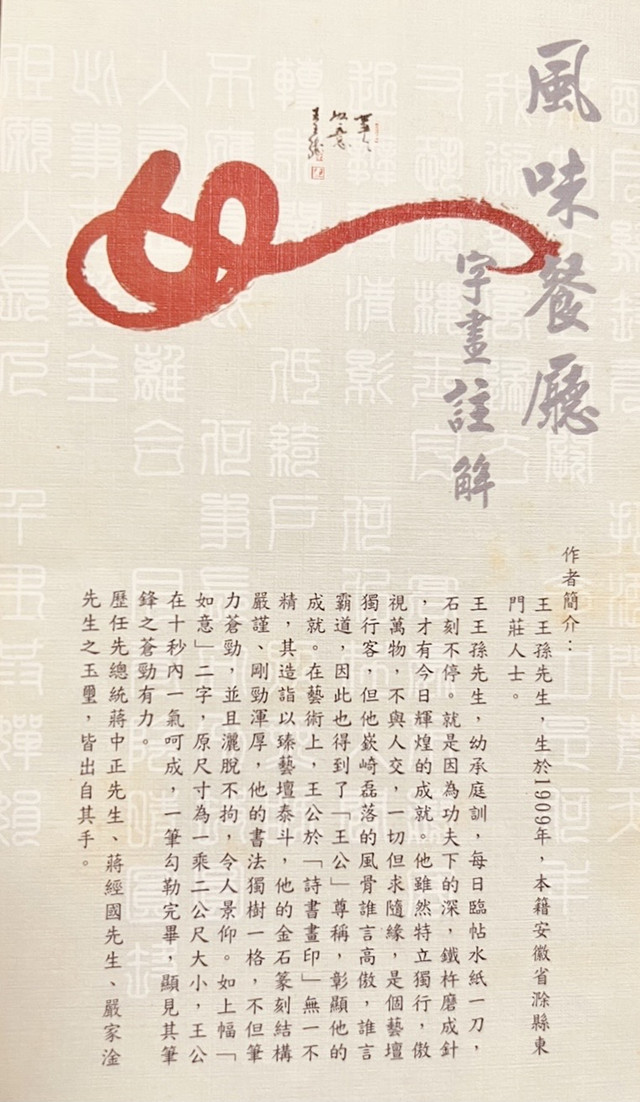 風味餐廳
字畫註解
作者簡介：
王王孫先生，生於1909年，本籍安徽省滁縣東
門莊人士。
王王孫先生，幼承庭訓，每日臨帖水紙一刀，
石刻不停。就是因為功夫下的深，鐵杵磨成針
，才有今日輝煌的成就。他雖然特立獨行，傲
視萬物，不與人交，一切但求隨緣，是個藝壇
獨行客，但他嶔崎磊落的風骨誰言高傲，誰言
霸道，因此也得到了「王公」尊稱，彰顯他的
成就。在藝術上，王公於「詩書畫印」無一不
精，其造詣以臻藝壇泰斗，他的金石篆刻結構
嚴謹、剛勁渾厚，他的書法獨樹一格，不但筆
力蒼勁，並且灑脫不拘，令人景仰。如上幅「
如意」二字，原尺寸為一乘二公尺大小，王公
在十秒內一氣呵成，一筆勾勒完畢，顯見其筆
鋒之蒼勁有力。
歷任先總統蔣中正先生、蔣經國先生、嚴家淦
先生之玉璽，皆出自其手。